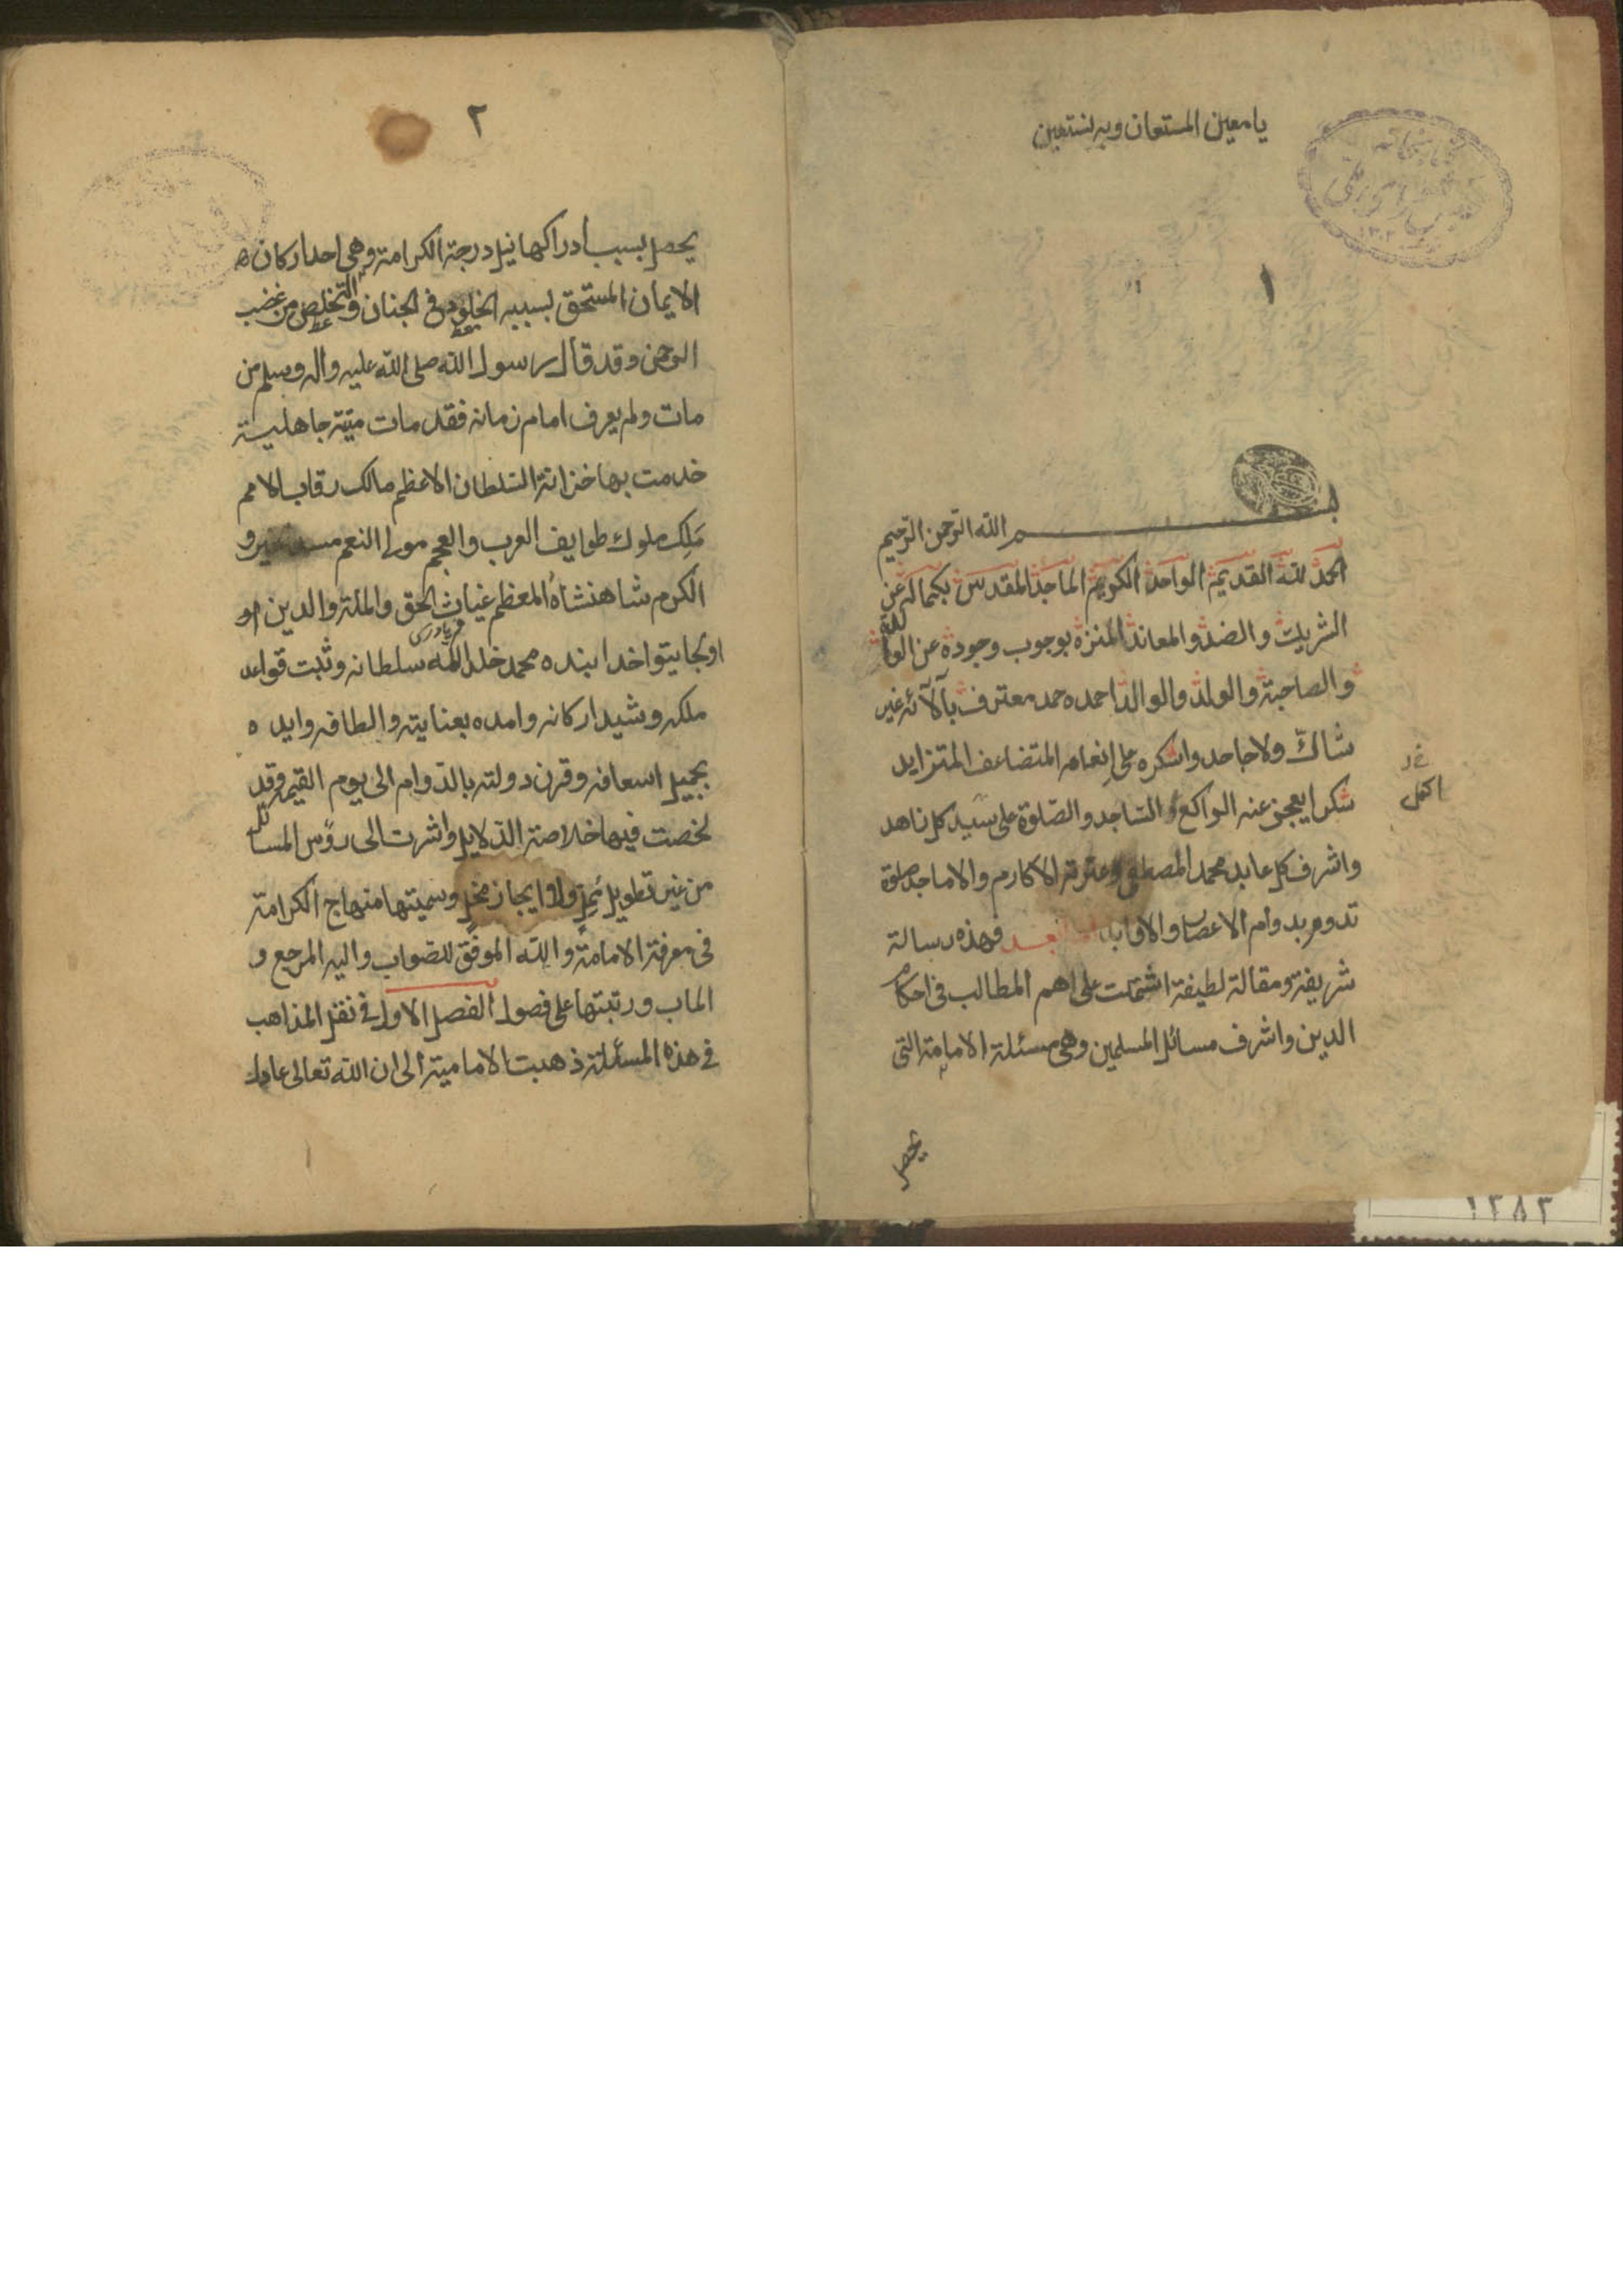 يا معين المستعان وبه نستعين
١
بسم الله الرحمن الرحيم
الحمد لله القديم الواحد الكريم الماجد المقدس بكماله عن
الشريك والضد والمعاند المنزه بوجوب وجوده عن الوالدة
والصاحبة والولد والوالد احمده حمد معترف بآلآئه غير
شاكّ ولا جاحد واشكره على انعامه المتضاعف المتزايد
شكرا يعجز عنه الراكع و الساجد والصّلوة على سيد كل زاهد
اكمل
واشرف كل عابد محمد المصطفى وعترته الاكارم والاماجد صلوة
تدوم بدوام الاعصار والاوابد اما بعد فهذه رسالة
شريفة ومقالة لطيفة اشتملت على اهم المطالب فى احكام
الدين واشرف مسائل المسلمين وهى مسئلة الامامة التى
يحصل
٢
يحصل بسبب ادراكها نيل درجة الكرامة وهى احد اركان
الايمان المستحق بسببه الخلود فى الجنان والتخلص من غضب
الرحمن وقد قال رسول الله صلى الله عليه واله وسلم من
مات ولم يعرف امام زمانه فقد مات ميتة جاهلية
خدمت بها خزانة السّلطان الاعظم مالك رقاب الامم
مَلِك ملوك طوايف العرب والعجم مولى النعم مسد الخير و
الكرم شاهنشاه المعظم غياث الحق والملة والدين
فريادرس
اولجايتو اخدابنده محمد خلد الله سلطانه وثبت قواعد
ملكه وشيد اركانه وامده بعنايته والطافه وايده
بجميل اسعافه وقرن دولته بالدّوام الى يوم القيمة وقد
لخصت فيها خلاصة الدّلايل واشرت الى رؤس المسائل
من غير تطويل مُمِلّ ولا ايجاز مخلّ وسميتها منهاج الكرامة
فى معرفة الامامة والله الموفق للصّواب واليه المرجع و
الماب ورتبتها على فصول الفصل الاول فى نقل المذاهب
فى هذه المسئلة ذهبت الامامية الى ان الله تعالى عادل
١٣٨٣